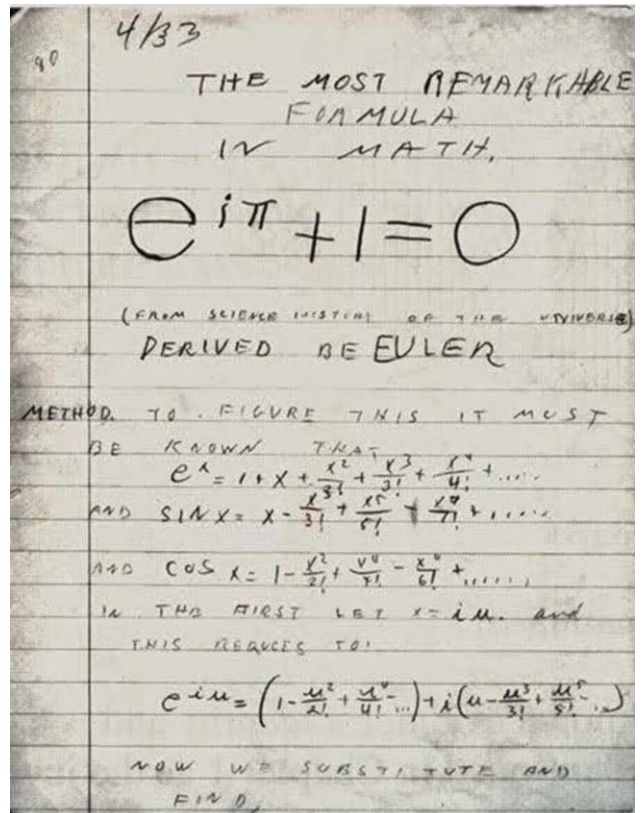 90
4/33
THE MOST REMARKABLE
FORMULA
IN MATH.
e^{iπ} + 1 = 0
(FROM SCIENCE HISTORY OF THE UNIVERSE)
DERIVED BE EULER
METHOD. TO FIGURE THIS IT MUST
BE KNOWN THAT
e^x = 1 + x + x^2/2! + x^3/3! + x^4/4! + .....
AND SIN X = X - x^3/3! + x^5/5! - x^7/7! + .....
AND COS X = 1 - x^2/2! + x^4/4! - x^6/6! + ......
IN THE FIRST LET X = iu. and
THIS REDUCES TO:
e^{iu} = (1 - u^2/2! + u^4/4! - ...) + i(u - u^3/3! + u^5/5! - ...)
NOW WE SUBSTITUTE AND
FIND,